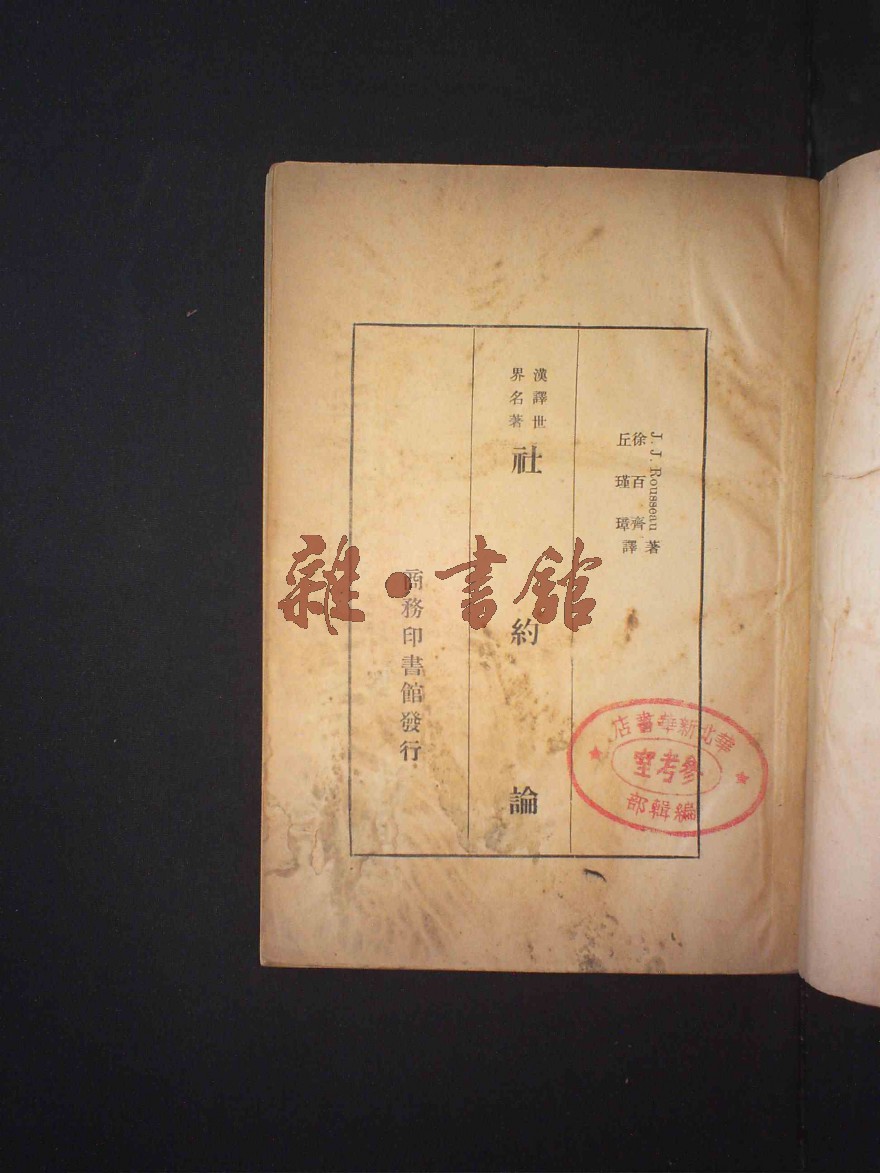 J. J. Rousseau 著
徐百齊
丘瑾璋
譯
漢譯世
界名著
社約論
商務印書館發行
華北新華書店
參考室
編輯部
雜·書館